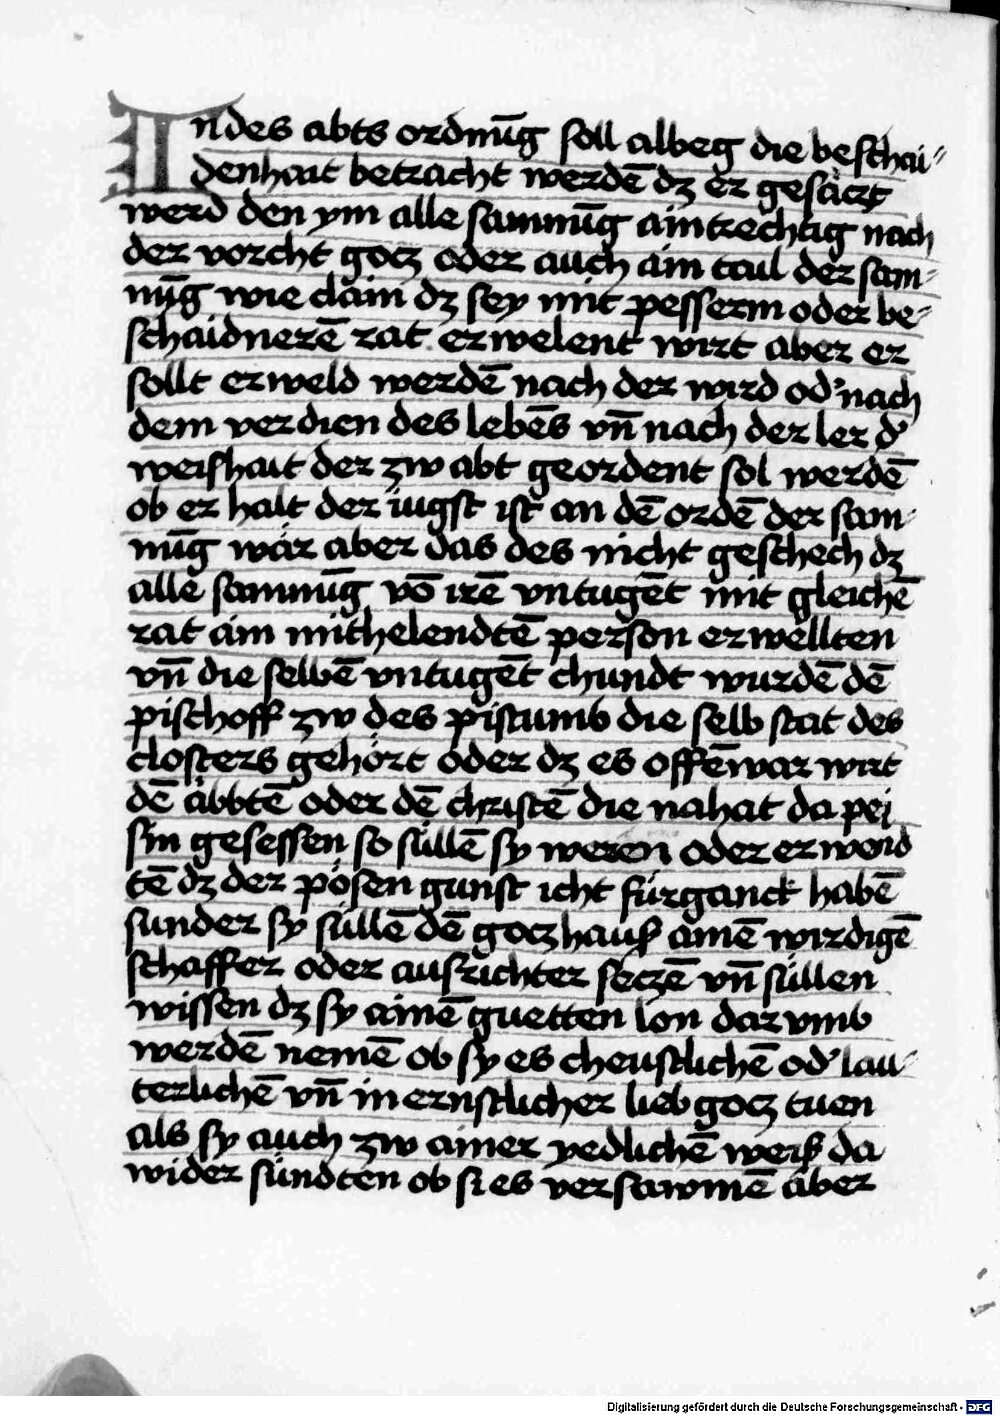 In des abts ordnūg soll albeg die beschai⸗
denhait betracht werdē dʒ er gesäczt
werd den ym alle sammūg aintrechtig nach
der vorcht gocz oder auch ain tail der sam⸗
nūg wie clain dʒ sey mit pesserm oder be⸗
schaidnerē rat erwelent wirt aber er
sollt erweld werdē nach der wird od' nach
dem verdien des lebēs vn̄ nach der ler d'
weishait der zw abt geordent sol werdē
ob er halt der iugst ist an dē ordē der sam⸗
nūg wär aber das des nicht geschech dʒ
alle sammūg vō irē vntugēt mit gleichē
rat ain mithelendtē person erwellten
vn̄ die selbē vntugēt chundt wurdē dē
pischoff zw des pistumb die selb stat des
closters gehört oder dʒ es offēwar wirt
dē äbbtē oder dē christē die nahat da pei
sin gesessen so süllē sy weren oder erwend
tē dʒ der pösen gunst icht fürganck habē
sunder sy süllē dē goczhauß ainē wirdigē
schaffer oder ausrichter seczē vn̄ süllen
wissen dʒ sy ainē guetten lon darvmb
werdē nemē ob sy es cheustlichē od' lau⸗
terlichē vn̄ in ernstlicher lieb gocz tuen
als sy auch zw ainer yedlichē weiß da
wider sündten ob si es versawmē aber
Digitalisierung gefördert durch die Deutsche Forschungsgemeinschaft - DFG